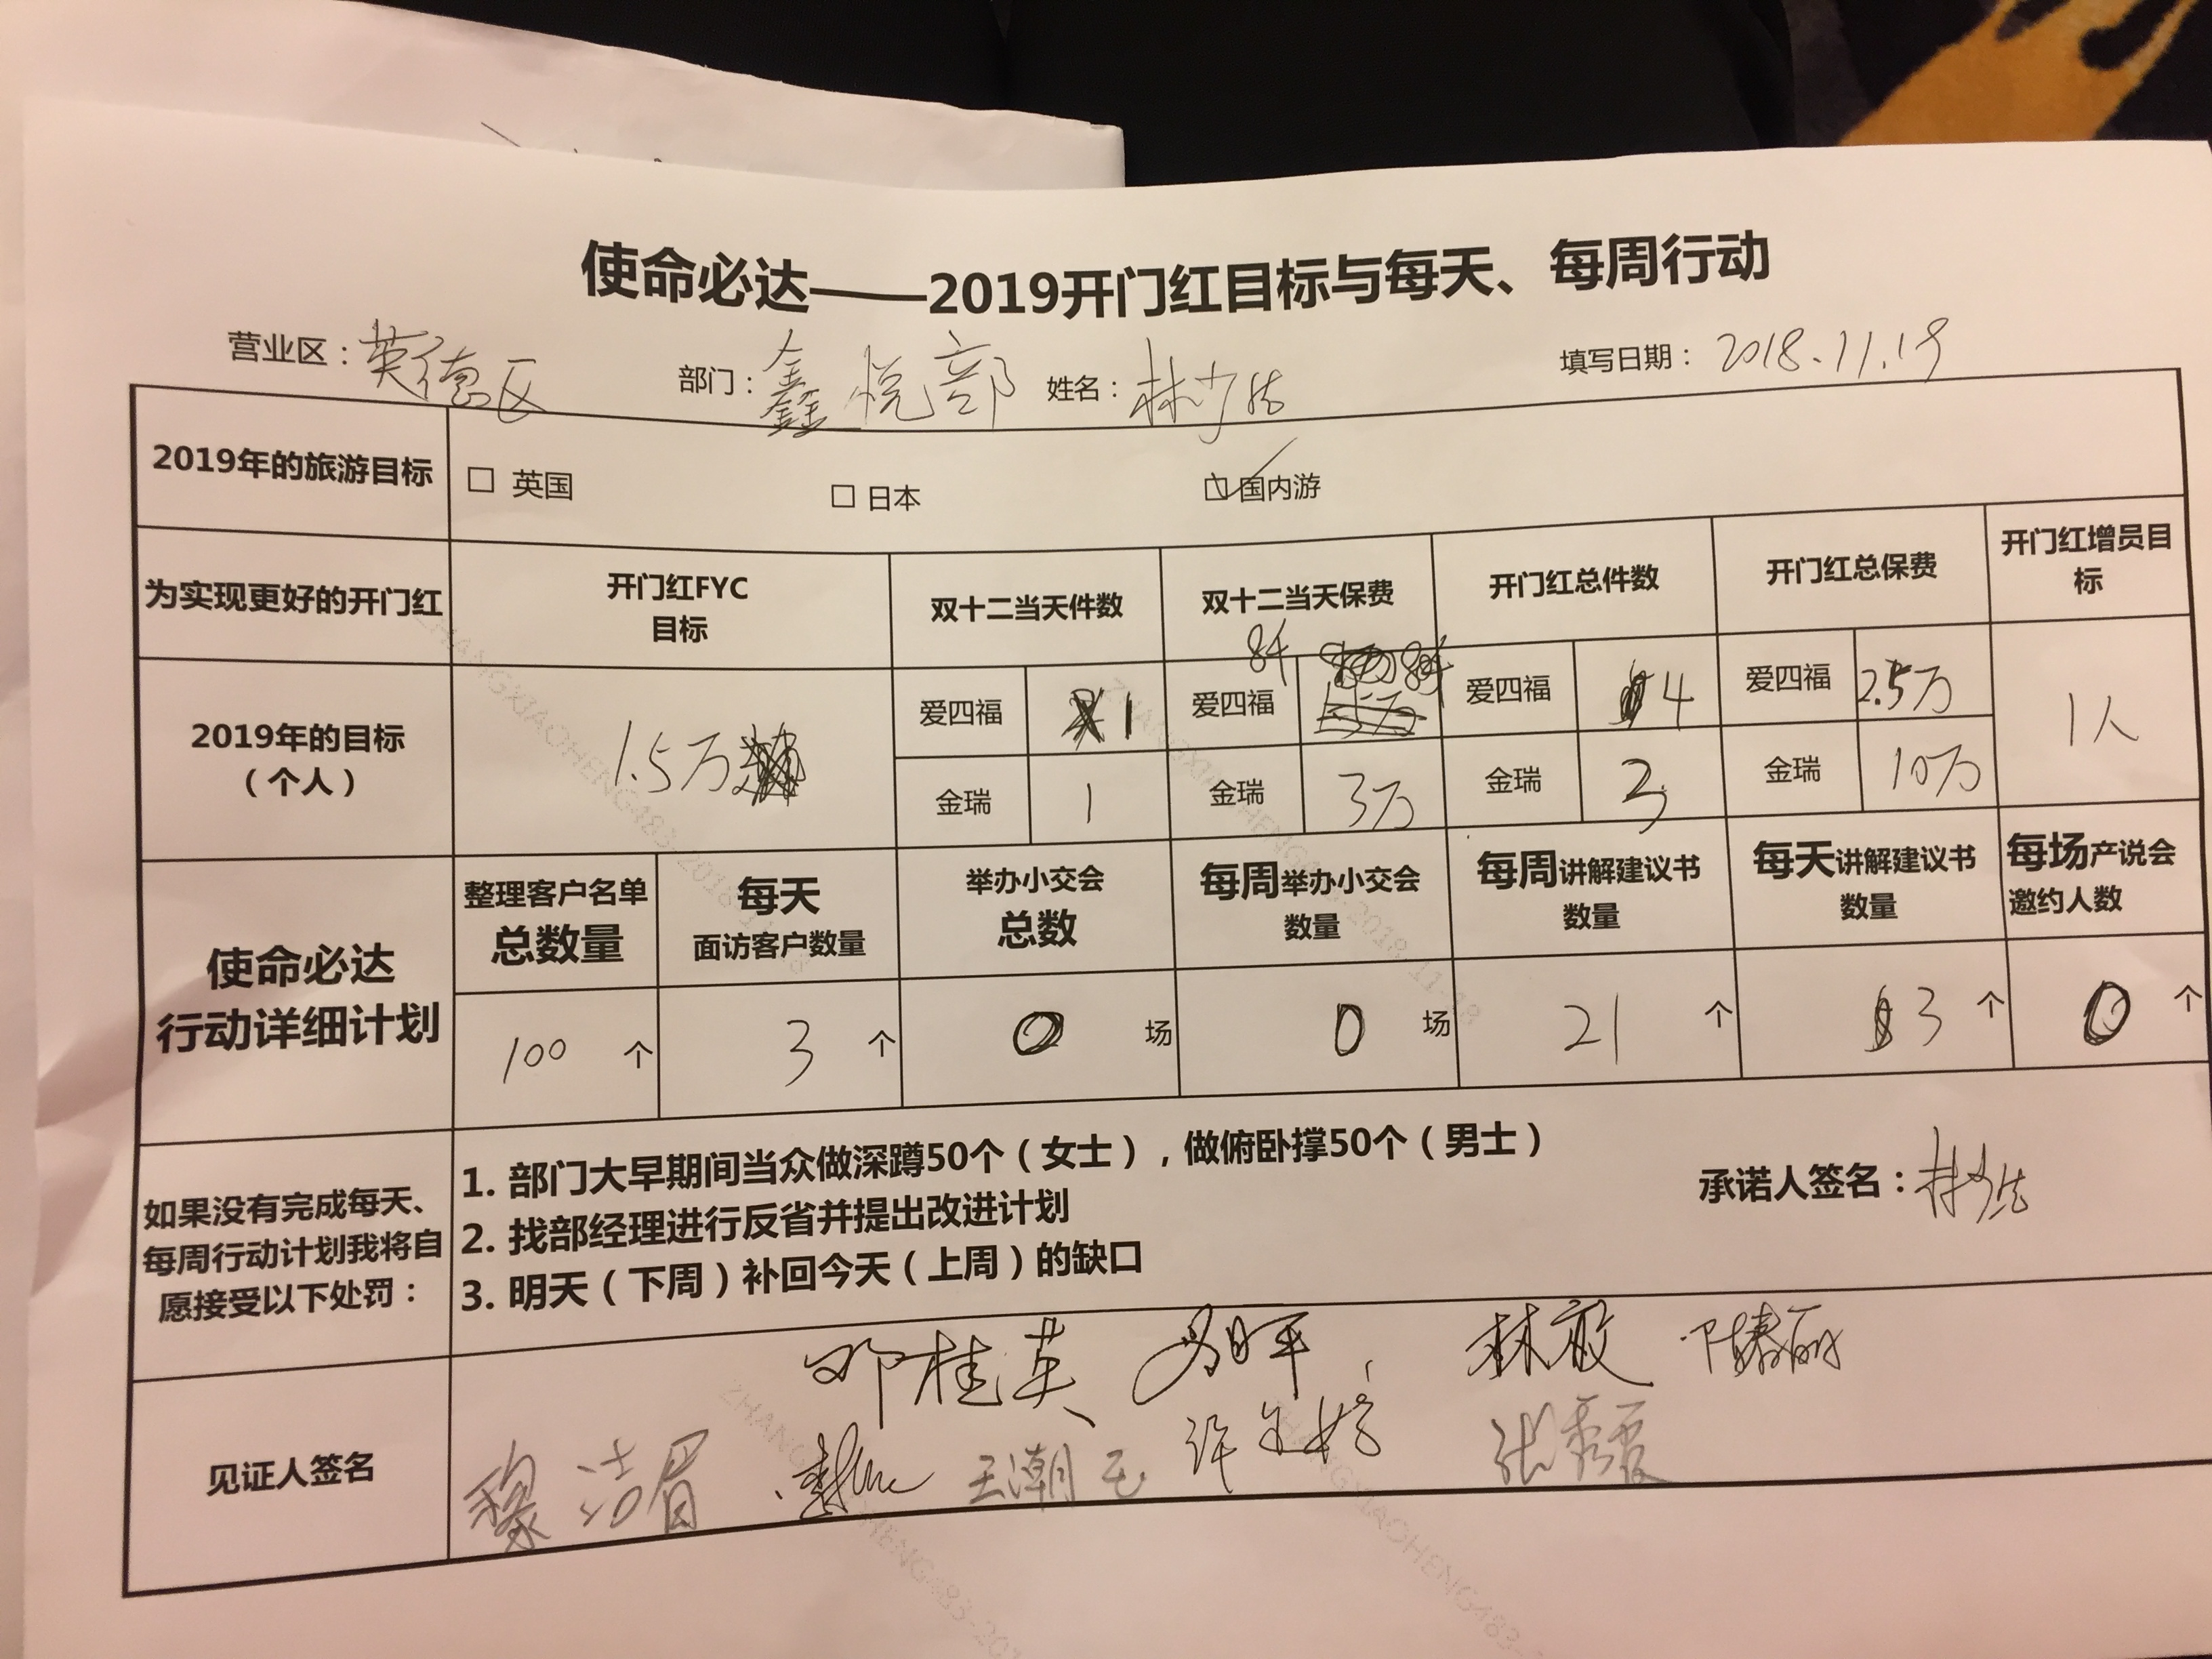 使命必达——2019开门红目标与每天、每周行动
营业区：英德区 部门：鑫悦部 姓名：林少 填写日期：2018.11.19
2019年的旅游目标 □ 英国 □ 日本 ☑ 国内游
为实现更好的开门红 开门红FYC目标 双十二当天件数 双十二当天保费 开门红总件数 开门红总保费 开门红增员目标
2019年的目标（个人） 1.5万 爱四福 1 爱四福 爱四福 4 爱四福 2.5万 1人
金瑞 1 金瑞 3万 金瑞 3 金瑞 10万
使命必达
行动详细计划
整理客户名单总数量 每天面访客户数量 举办小交会总数 每周举办小交会数量 每周讲解建议书数量 每天讲解建议书数量 每场产说会邀约人数
100 个 3 个 0 场 0 场 21 个 3 个 0 个
如果没有完成每天、
每周行动计划我将自
愿接受以下处罚：
1. 部门大早期间当众做深蹲50个（女士），做俯卧撑50个（男士）
2. 找部经理进行反省并提出改进计划
3. 明天（下周）补回今天（上周）的缺口
承诺人签名：林少
见证人签名
邓桂英 林敏
王潮玉 张秀霞
ZHANGXIAOHENG483-2018-11-18
ZHANGXIAOHENG483-2018-11-18
ZHANGXIAOHENG483-201
ZHANGXIAOHENG483-